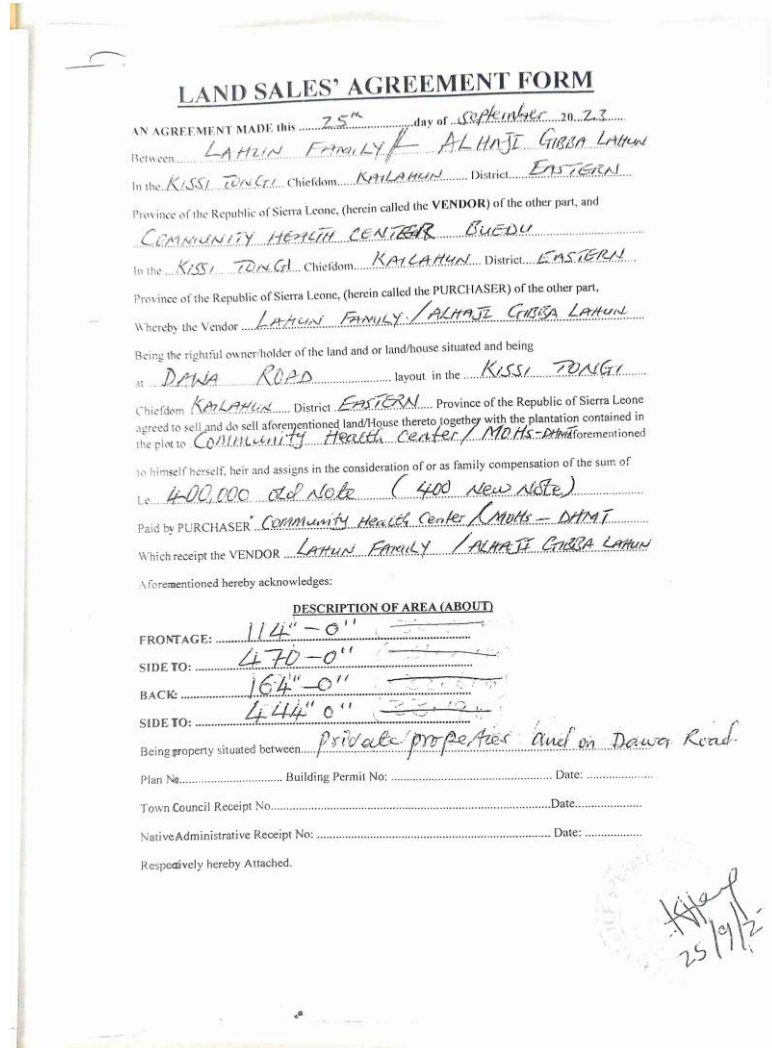 LAND SALES' AGREEMENT FORM
AN AGREEMENT MADE this ....25th....day of ..September.. 20..23....
Between.... LAHUN FAMILY // ALHAJI GIBBA LAHUN
In the.KISSI TONGI. Chiefdom....KAILAHUN.... District....EASTERN....
Province of the Republic of Sierra Leone, (herein called the VENDOR) of the other part, and
COMMUNITY HEALTH CENTER BUEDU
In the ...KISSI TONGI... Chiefdom....KAILAHUN... District...EASTERN....
Province of the Republic of Sierra Leone, (herein called the PURCHASER) of the other part,
Whereby the Vendor ..LAHUN FAMILY / ALHAJI GIBBA LAHUN
Being the rightful owner/holder of the land and or land/house situated and being
at ..DAWA ROAD.... layout in the ....KISSI TONGI
Chiefdom KAILAHUN.... District .EASTERN.... Province of the Republic of Sierra Leone
agreed to sell and do sell aforementioned land/House thereto together with the plantation contained in
the plot to .Community Health Center / MOHS-DHMT aforementioned
to himself herself, heir and assigns in the consideration of or as family compensation of the sum of
Le 400,000 old Note ( 400 New Note)
Paid by PURCHASER Community Health Center / MOHS - DHMT
Which receipt the VENDOR ...LAHUN FAMILY / ALHAJI GIBBA LAHUN
Aforementioned hereby acknowledges:
DESCRIPTION OF AREA (ABOUT)
FRONTAGE: ....114"-0"
SIDE TO: ....470-0"
BACK: ....164"-0"
SIDE TO: ....444" 0"
Being property situated between....Private properties and on Dawa Road.
Plan No.................... Building Permit No: .................... Date: ..............
Town Council Receipt No.................................................Date....................
Native Administrative Receipt No: .................................................. Date: .................
Respectively hereby Attached.
25/9/2